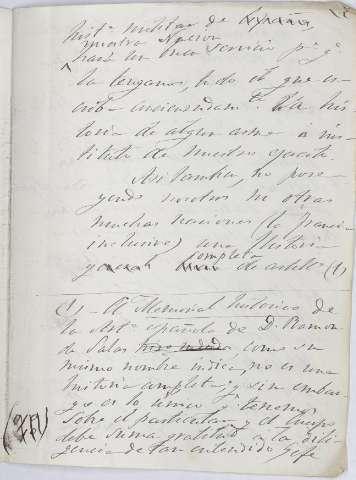 histª militar de España,
nuestra Nacion
hará un buen servicio pª qe
la tengamos, todo el que es-
criba concienzudamte la his-
toria de algun arma ó ins-
tituto de nuestro ejercito.
Asi tambien, no pose-
yendo nosotros ni otras
muchas naciones (la francia
inclusive) una historia
general completa de artillª (1)
(1) - El Memorial historico de
la Artª española de D. Ramon
de Salas, como su
mismo nombre indica, no es una
historia completa, y sin embar-
go es lo único qe tenemos
sobre el particular y el cuerpo
debe suma gratitud a la dili-
gencia de tan entendido Gefe